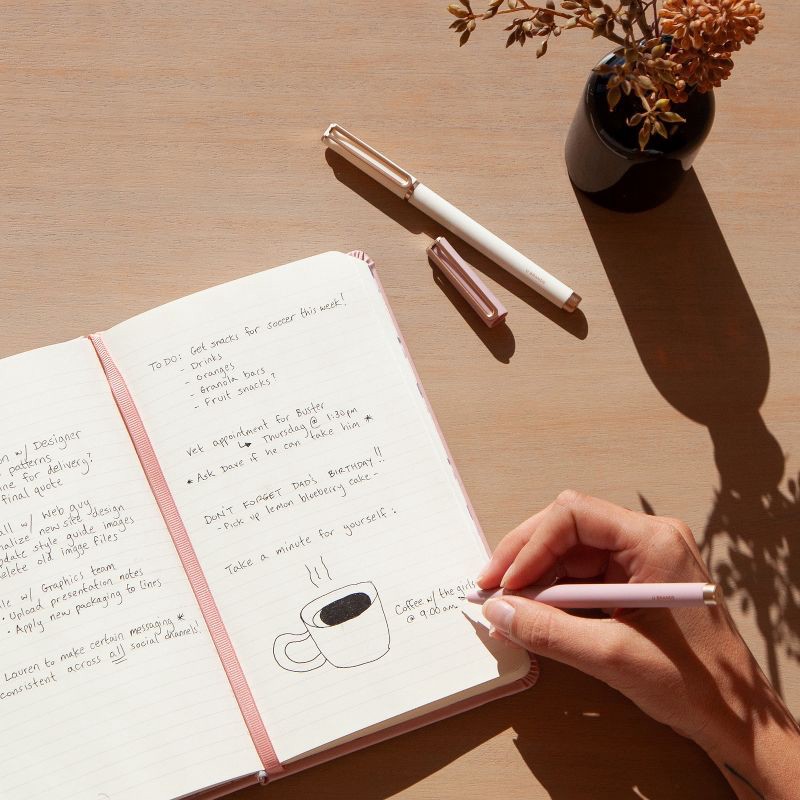 on w/ Designer
patterns
ine for delivery?
final quote
all w/ Web guy
nalize new site design
pdate style guide images
elete old image files
le w/ Graphics team
• Upload presentation notes
• Apply new packaging to lines
Lauren to make certain messaging *
consistent across all social channels!
TO DO: Get snacks for soccer this week!
- Drinks
- oranges
- Granola bars
- Fruit snacks?
Vet appointment for Buster
↳ Thursday @ 1:30pm
* Ask Dave if he can take him *
DON'T FORGET DAD'S BIRTHDAY!!
- Pick up lemon blueberry cake -
Take a minute for yourself:
Coffee w/ the girls
@ 9:00am
U BRANDS
U BRANDS